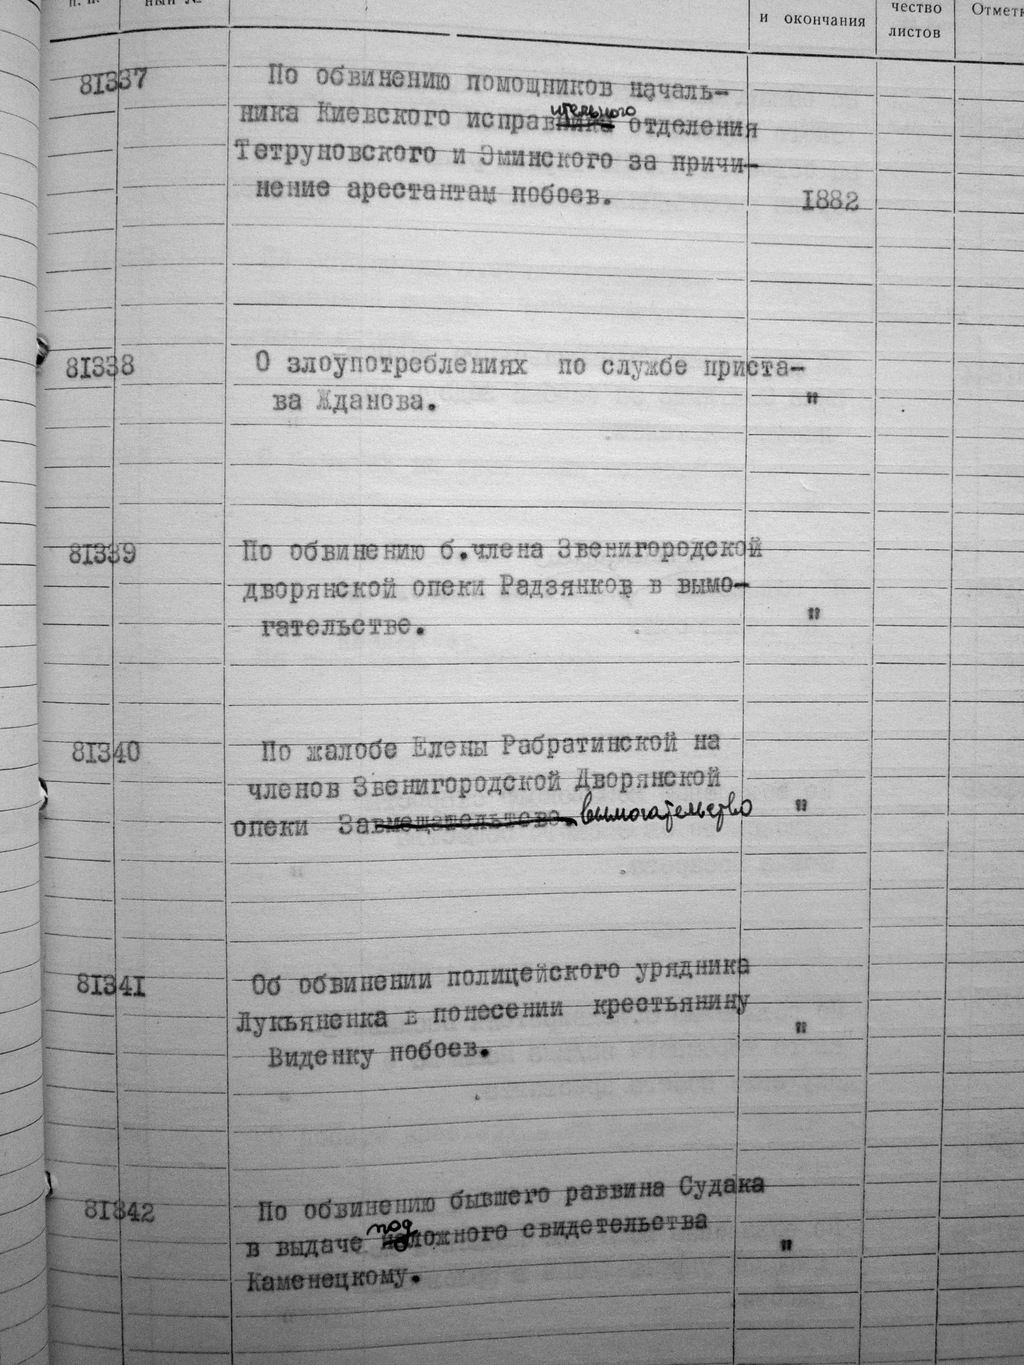 п. п.
ный №
и окончания
чество
листов
Отметк
81337
По обвинению помощников началь-
ника Киевского исправительного отделения
Тетруновского и Эминского за причи-
нение арестантам побоев.
1882
81338
О злоупотреблениях по службе приста-
ва Жданова.
"
81339
По обвинению б.члена Звенигородской
дворянской опеки Радзянков в вымо-
гательстве.
"
81340
По жалобе Елены Рабратинской на
членов Звенигородской Дворянской
опеки За вымогательство
"
81341
Об обвинении полицейского урядника
Лукьяненка в понесении крестьянину
Виденку побоев.
"
81342
По обвинению бывшего раввина Судака
в выдаче подложного свидетельства
Каменецкому.
"